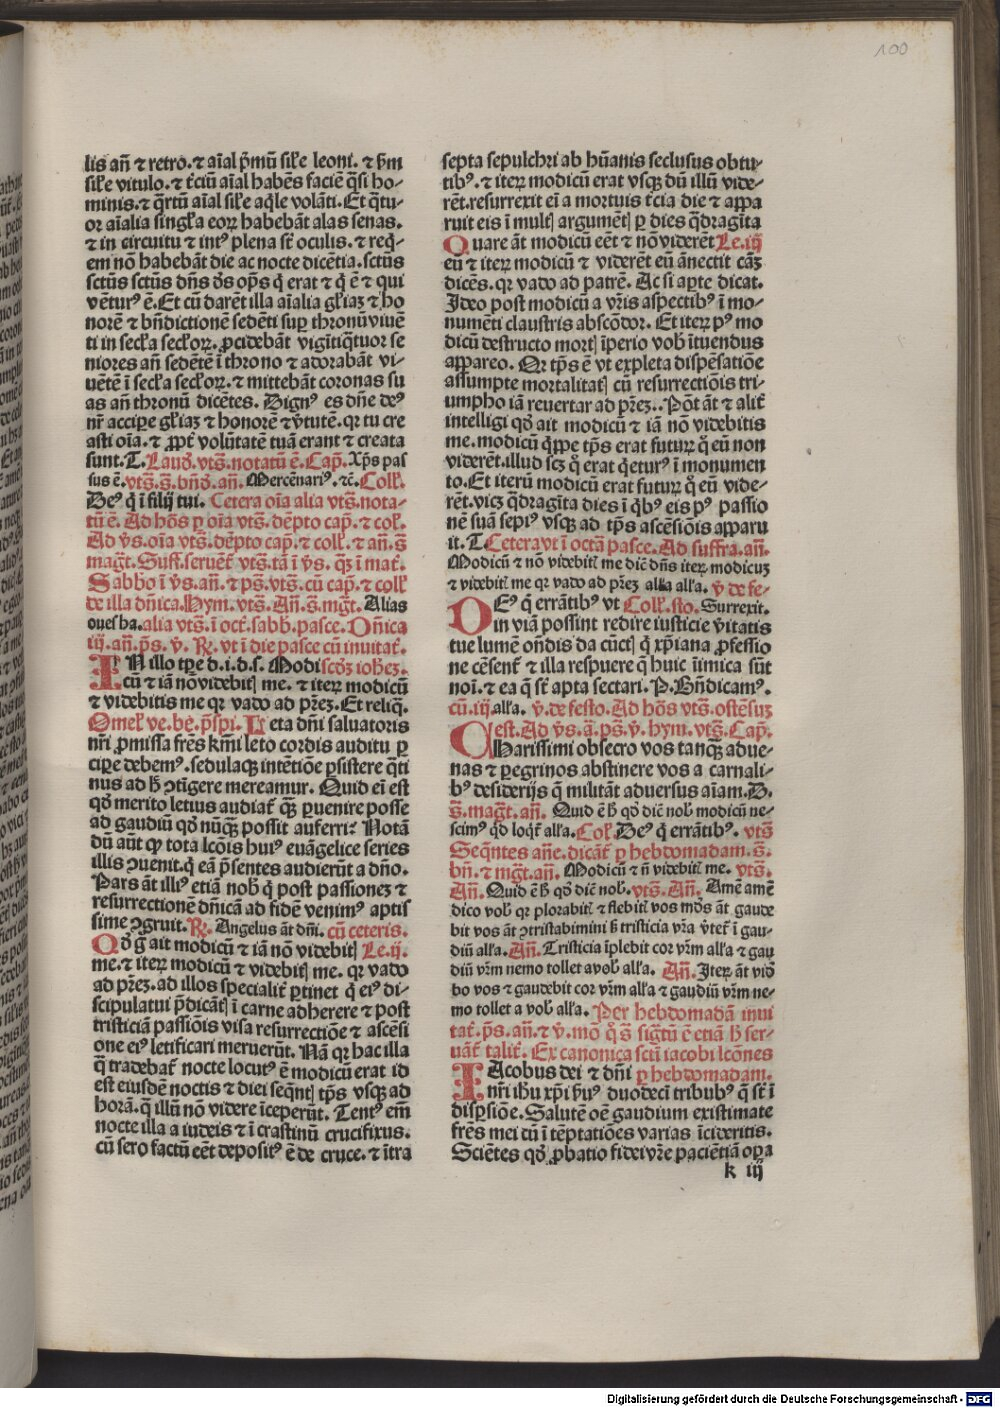 100
lis añ ⁊ retro. ⁊ aīal p̄mū sil̄e leoni. ⁊ ẜm
sil̄e vitulo. ⁊ t̄ciū aīal habēs faciē q̄si ho-
minis. ⁊ q̄rtū aīal sil̄e aq̄le volāti. Et q̄tu-
or aīalia singl̄a eoꝝ habebāt alas senas.
⁊ in circuitu ⁊ intꝰ plena st̄ oculis. ⁊ req̄-
em nō habebāt die ac nocte dicētia. sctūs
sctūs sctūs dn̄s d̄s op̄s q̇ erat ⁊ q̇ ē ⁊ qui
vētur⁹ ē. Et cū darēt illa aīalia gl̄iaꝫ ⁊ ho
norē ⁊ bn̄dictionē sedēti suꝑ thronū viuē
ti in secl̄a secl̄oꝝ. ꝓcidebāt vigītiq̄tuor se
niores añ sedētē ī throno ⁊ adorabāt vi-
uētē ī secl̄a secl̄oꝝ. ⁊ mittebāt coronas su
as añ thronū dicētes. Dign⁹ es dn̄e de⁹
nr̄ acciꝑe gl̄iaꝫ ⁊ honorē ⁊ v̄tutē. qꝛ tu cre
asti oīa. ⁊ ꝓpt̄ volūtatē tuā erant ⁊ creata
sunt. T. Laud̄. vts̄. notatū ē. Cap̄. Xp̄s pas
sus ē. vts̄. s̄. bn̄d̄. añ. Mercēnari⁹. ⁊c̄. Coll̄.
De⁹ q̇ ī filij tui. Cetera oīa alia vts̄. nota-
tū ē. Ad hōs ꝑ oīa vts̄. dēpto cap̄. ⁊ col̄.
Ad v̄s. oīa vts̄. dēpto cap̄. ⁊ coll̄. ⁊ añ. s̄
maḡt. Suff. seruēt̄ vts̄. tā ī v̄s. q̄ꝫ ī mat̄.
Sabbo ī v̄s. añ. ⁊ ps̄. vts̄. cū cap̄. ⁊ coll̄
de illa dn̄ica. Hym. vts̄. Añ. s̄. mḡt. Alias
oues ha. alia vts̄. ī oct̄. sabb̄. pasce. Dn̄ica
iij. añ. ps̄. v̄. R̄. vt ī die pasce cū inuitat̄.
IN illo tꝑe d. i. d. s. Modi scd̄ꝫ iohēꝫ.
cū ⁊ iā nō videbitꝭ me. ⁊ iteꝝ modicū
⁊ videbitis me qꝛ vado ad p̄reꝫ. Et reliq̄.
Omel̄ ve. bē. p̄spi. Leta dn̄i saluatoris
nr̄i ꝓmissa frēs km̄i leto cordis auditu ꝑ
ciꝑe debem⁹. sedulaqꝫ intētiōe ꝑsistere q̄ti
nus ad h̄ ꝯtīgere mereamur. Quid ei̅ est
qd̄ merito letius audiat̄ q̄ꝫ ꝑuenire posse
ad gaudiū qd̄ nūq̄ꝫ possit auferri? Notā
dū aūt ꝙ tota lcōis hui⁹ euāgelice series
illis ꝯuenit. q̇ eā p̄sentes audierūt a dn̄o.
Pars āt illi⁹ etiā nob̄ q̇ post passioneꝫ ⁊
resurrectionē dn̄icā ad fidē venim⁹ aptis
sime ꝯgruit. R̄. Angelus āt dn̄i. cū ceteris.
Qd̄ g̊ ait modicū ⁊ iā nō videbitꝭ Le. ij.
me. ⁊ iteꝝ modicū ⁊ videbitꝭ me. qꝛ vado
ad p̄reꝫ. ad illos specialit̄ ꝑtinet q̇ ei⁹ di-
scipulatui p̄dicātꝭ ī carne adherere ⁊ post
tristiciā passiōis visa resurrectiōe ⁊ ascēsi
one ei⁹ letificari meruerūt. Nā qꝛ hac illa
q̄ tradebat̄ nocte locut⁹ ē modicū erat id
est eiusdē noctis ⁊ diei seq̄ntꝭ tp̄s vsqꝫ ad
horā. q̄ illū nō videre īceperūt. Tent⁹ em̄
nocte illa a iudeis ⁊ ī crastinū crucifixus.
cū sero factū eēt deposit⁹ ē de cruce. ⁊ ītra
septa sepulchri ab hūanis seclusus obtu-
tib⁹. ⁊ iteꝝ modicū erat vsqꝫ dū illū vide-
rēt. resurrexit ei̅ a mortuis t̄cia die ⁊ appa
ruit eis ī multꝭ argumētꝭ ꝑ dies q̄dragīta
Quare āt modicū eēt ⁊ nō viderēt Le. iij
eū ⁊ iteꝝ modicū ⁊ viderēt eū ānectit cāꝫ
dicēs. qꝛ vado ad patrē. Ac si aꝑte dicat.
Ideo post modicū a vr̄is aspectib⁹ ī mo-
numēti claustris abscōdor. Et iteꝝ p⁹ mo
dicū destructo mortꝭ īperio vob̄ ītuendus
appareo. Qꝛ tp̄s ē vt expleta dispēsatiōe
assumpte mortalitatꝭ cū resurrectiōis tri-
umpho iā reuertar ad p̄reꝫ.. Pōt āt ⁊ alit̄
intelligi qd̄ ait modicū ⁊ iā nō videbitis
me. modicū q̇ppe tp̄s erat futuꝝ q̊ eū non
viderēt. illud scꝫ q̊ erat q̇etur⁹ ī monumen
to. Et iterū modicū erat futuꝝ q̊ eū vide-
rēt. vicꝫ q̄dragīta dies ī q̇b⁹ eis p⁹ passio
nē suā sepi⁹ vsqꝫ ad tp̄s ascēsiōis apparu
it. T. Cetera vt ī octā pasce. Ad suffra. añ.
Modicū ⁊ nō videbitꝭ me dic̄ dn̄s iteꝝ modicuꝫ
⁊ videbitꝭ me qꝛ vado ad p̄reꝫ alla all̄a. v̄ de fe-
DE⁹ q̇ errātib⁹ vt Coll̄. sto. Surrexit.
in viā possint redire iusticie v̄itatis
tue lumē on̄dis da cūctꝭ q̇ xp̄iana ꝓfessio
ne cēsent̄ ⁊ illa respuere q̄ huic īimica sūt
noī. ⁊ ea q̄ st̄ apta sectari. P. Bn̄dicam⁹.
cū. iij alla. v̄. de festo. Ad hōs vts̄. ostēsuꝫ
est. Ad v̄s. a. ps̄. v̄. hym. vts̄. Cap̄.
CHarissimi obsecro vos tanq̄ꝫ adue-
nas ⁊ ꝑegrinos abstinere vos a carnali-
b⁹ desiderijs q̄ militāt aduersus aīam. D.
s̄. maḡt. añ. Quid ē h̄ qd̄ dic̄ nob̄ modicū ne-
scim⁹ qd̄ loqt̄ all̄a. Col̄. De⁹ q̇ errātib⁹. vts̄
Seq̄ntes añe. dicāt̄ ꝑ hebdomadam. s̄.
bn̄. ⁊ mḡt. añ. Modicū ⁊ n̄ videbitꝭ me. vts̄.
Añ. Quid ē h̄ qd̄ dic̄ nob̄. vts̄. Añ. Amē amē
dico vob̄ qꝛ plorabitꝭ ⁊ flebitꝭ vos mōs āt gaude
bit vos āt ꝯtristabimini ẜ tristicia vr̄a v̄tet̄ ī gau-
diū all̄a. Añ. Tristicia īplebit cor vr̄m all̄a ⁊ gau
diū vr̄m nemo tollet a vob̄ all̄a. Añ. Iteꝝ āt vid̄
bo vos ⁊ gaudebit cor vr̄m all̄a ⁊ gaudiū vr̄m ne-
mo tollet a vob̄ all̄a. Per hebdomadā inui
tat̄. ps̄. añ. ⁊ v̄. mō q̊ s̄ sigtū ē etiā h̄ ser-
uāt̄ talit̄. Ex canonica scti̅ iacobi lcōnes
IAcobus dei ⁊ dn̄i ꝑ hebdomadam.
nr̄i ihu xp̄i ẜu⁹ duodeci̅ tribub⁹ q̄ st̄ ī
disꝑsiōe. Salutē oē gaudium existimate
frēs mei dū ī tēptatiōes varias īcideritis.
Sciētes qd̄ ꝓbatio fidei vr̄e paciētiā oꝑa
k iij
Digitalisierung gefördert durch die Deutsche Forschungsgemeinschaft - DFG